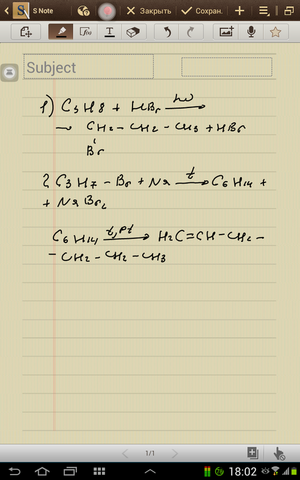 S Note
Закрыть
Сохран.
Subject
1) C3H8 + HBr hν→
→ CH2 – CH2 – CH3 + HBr
Br
2 C3H7 – Br + Na t→ C6H14 +
+ NaBr2
C6H14 t, Pt→ H2C=CH–CH2–
–CH2 – CH2 – CH3
1/1
18:02